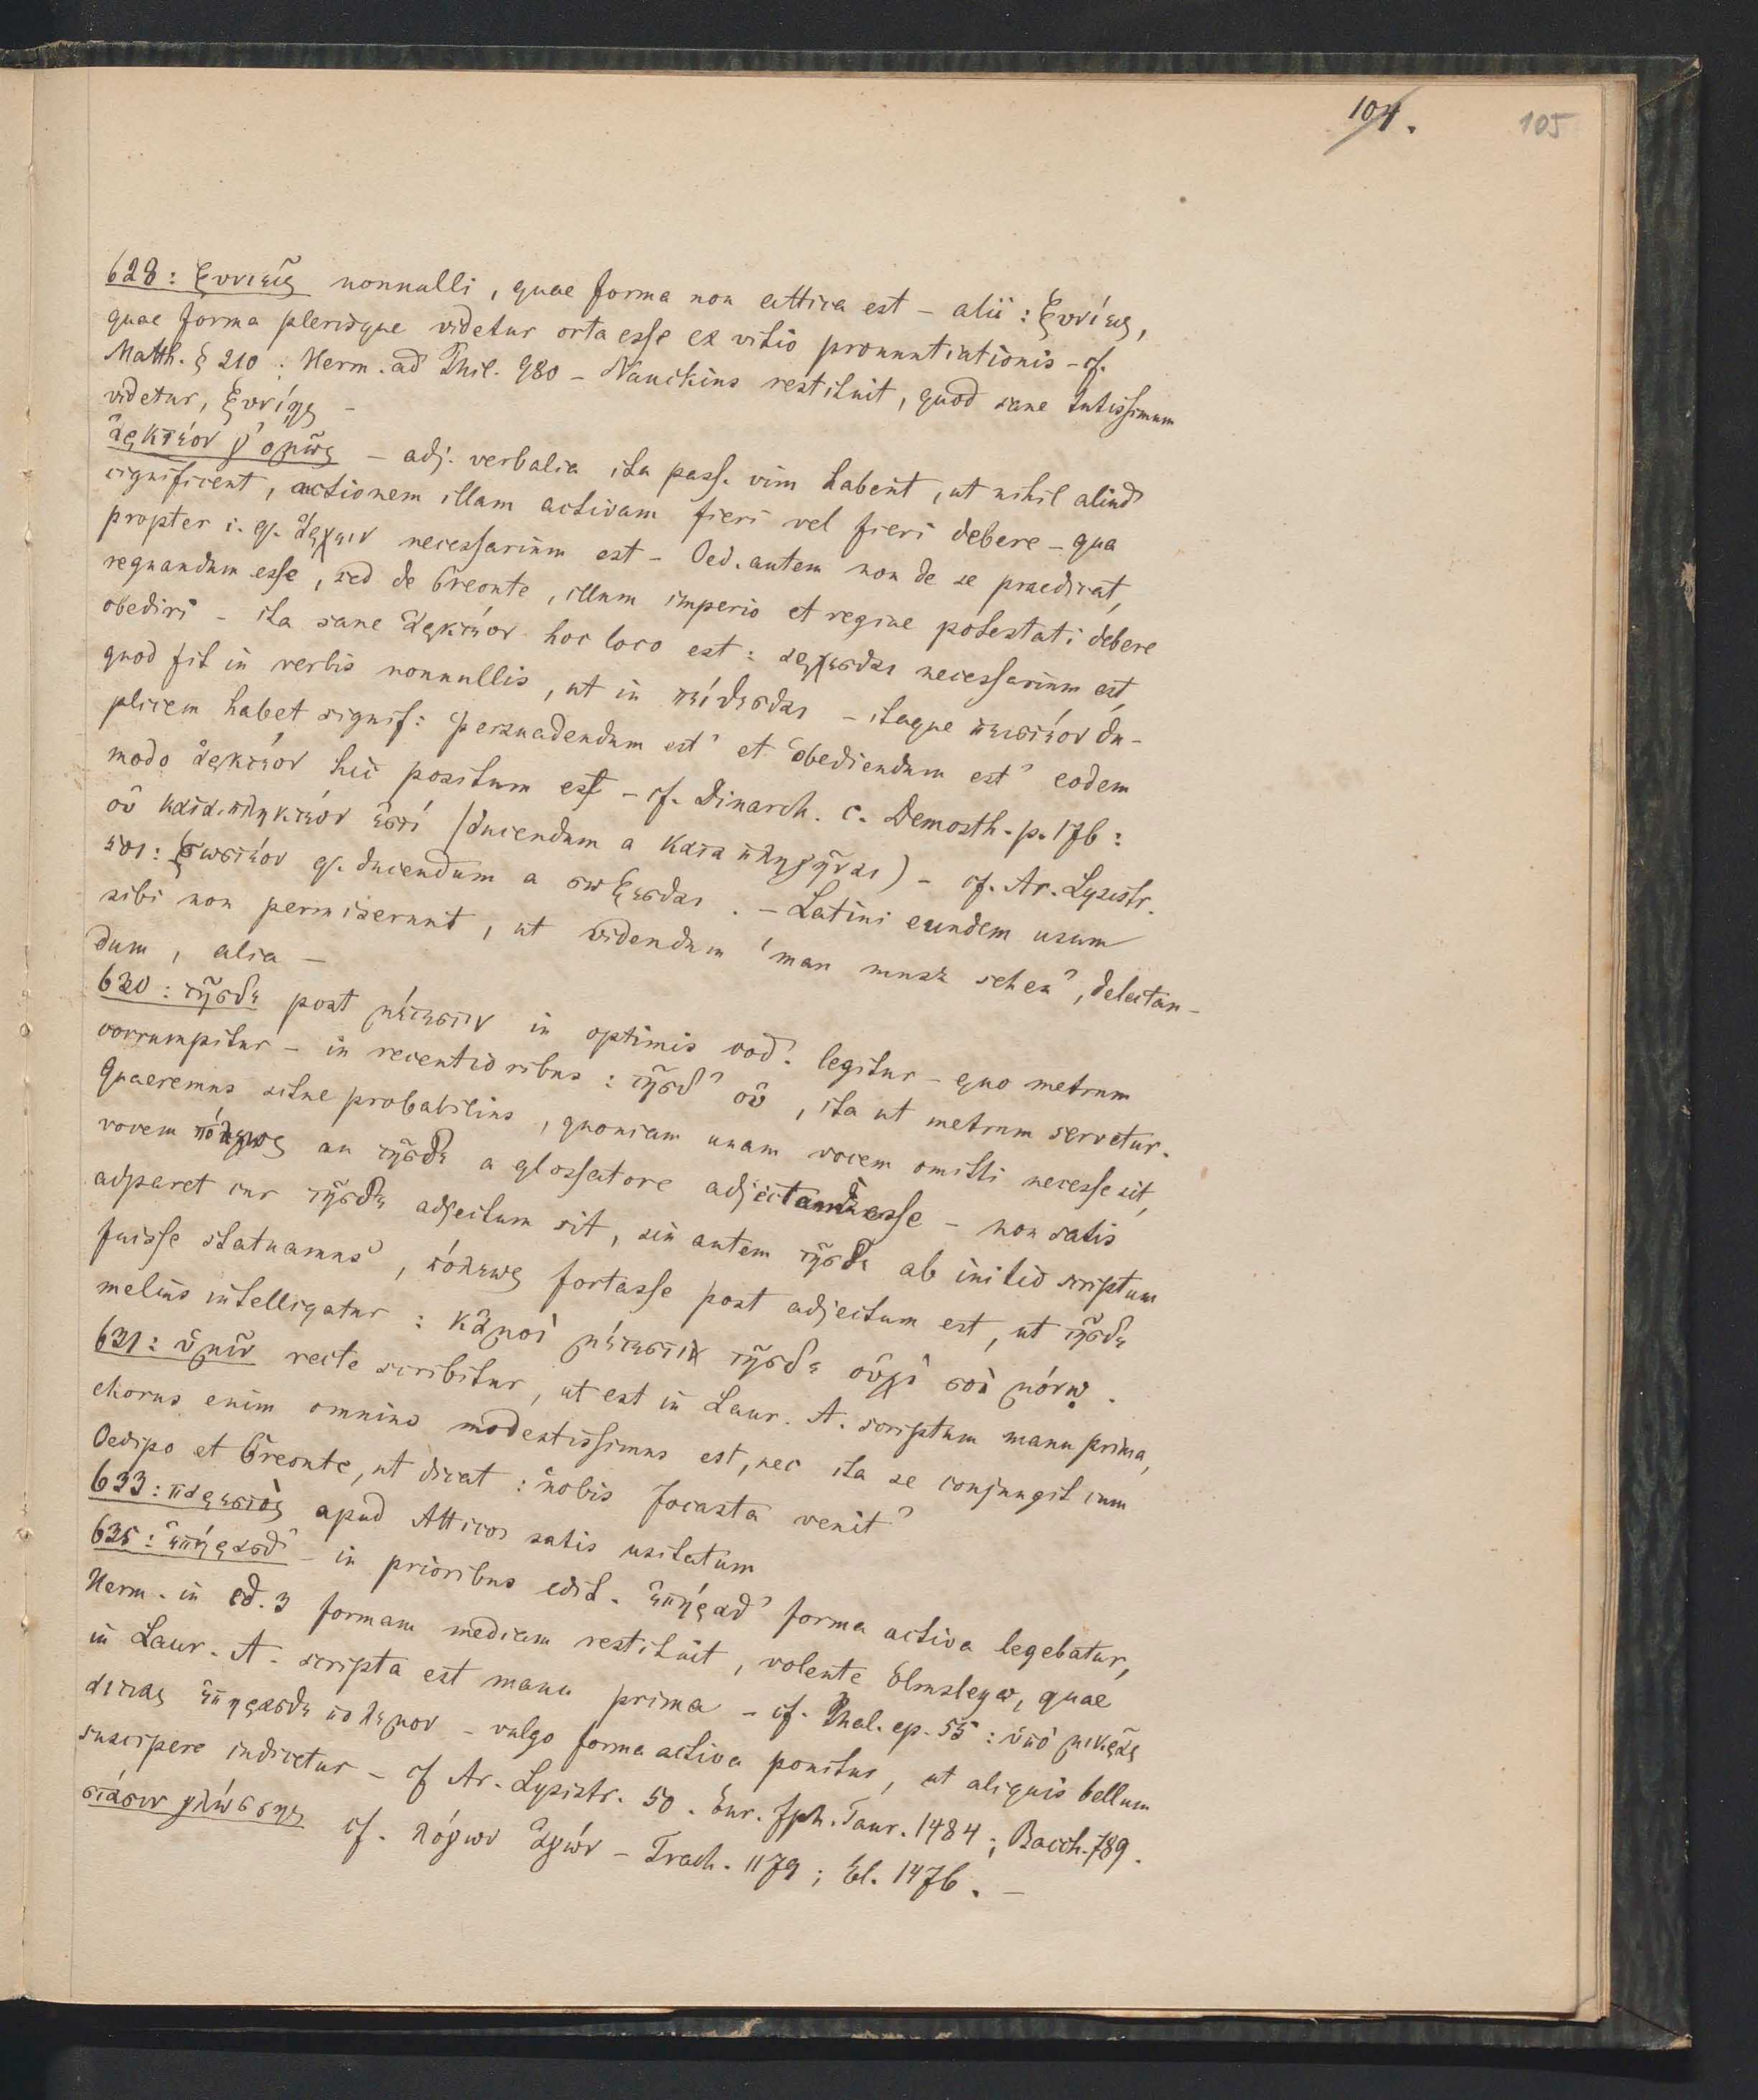 104.
105
628: ξυνιεῖς nonnulli, quae forma non attica est – alii: ξυνίεις,
quae forma plerisque videtur orta esse ex vitio pronuntiationis – cf.
Matth. § 210 : Herm. ad Phil. 980 – Nauckius restituit, quod sane tutissimum
videtur, ξυνίης –
ἀρκτέον γ' ὁμῶς – adj. verbalia ita pass. vim habent, ut nihil aliud
significent, actionem illam activam fieri vel fieri debere – qua
propter i. q. ἄρχειν necessarium est – Oed. autem non de se praedicat,
regnandum esse, sed de Creonte, illum imperio et regiae potestati debere
obediri – ita sane ἀρκτέον hoc loco est: ἄρχεσθαι necessarium est,
quod fit in verbis nonnullis, ut in πείθεσθαι – itaque πειστέον du-
plicem habet signif: 'persuadendum est' et 'obediendum est' eodem
modo ἀρκτέον hic positum est – cf. Dinarch. c. Demosth. p. 176:
οὐ καταπληκτέον ἐστί (ducendum a καταπληγῆναι) – cf. Ar. Lysistr.
501: σωστέον q. ducendum a σώζεσθαι. – Latini eundem usum
sibi non permiserunt, ut videndum 'man muss sehen', delectan-
dum, alia –
630: τῆσδε post μέτεστιν in optimis cod. legitur – quo metrum
corrumpitur – in recentioribus: τῆσδ' οὐ, ita ut metrum servetur.
Quaeremus sitne probabilius, quoniam unam vocem omitti necesse sit,
vocem πόλεως an τῆσδε a glossatore adjectam esse – non satis
adparet cur τῆσδε adjectum sit, sin autem τῆσδε ab initio scriptum
fuisse statuamus, πόλεως fortasse post adjectum est, ut τῆσδε
melius intelligatur: κἀμοὶ μέτεστι τῆσδε οὐχὶ σοὶ μόνῳ.
631: ὑμῖν recte scribitur, ut est in Laur. A. scriptum manu prima,
chorus enim omnino modestissimus est, nec ita se conjungit cum
Oedipo et Creonte, ut dicat: 'nobis Jocasta venit'
633: παρεστὸς apud Atticos satis usitatum
635: ἐπήρασθ' – in prioribus edit. ἐπήρατ' forma activa legebatur,
Herm. in ed. 3 formam mediam restituit, volente Elmsleyo, quae
in Laur. A. scripta est manu prima – cf. Phal. ep. 55: ὑπὸ μικρᾶς
αἰτίας ἐπήρασθε πόλεμον – vulgo forma activa ponitur, ut aliquis bellum
suscipere indicetur – cf Ar. Lysistr. 50. Eur. Iph. Taur. 1484; Bacch. 789.
στάσιν γλώσσης cf. λόγων ἀγών – Trach. 1179; El. 1476. –